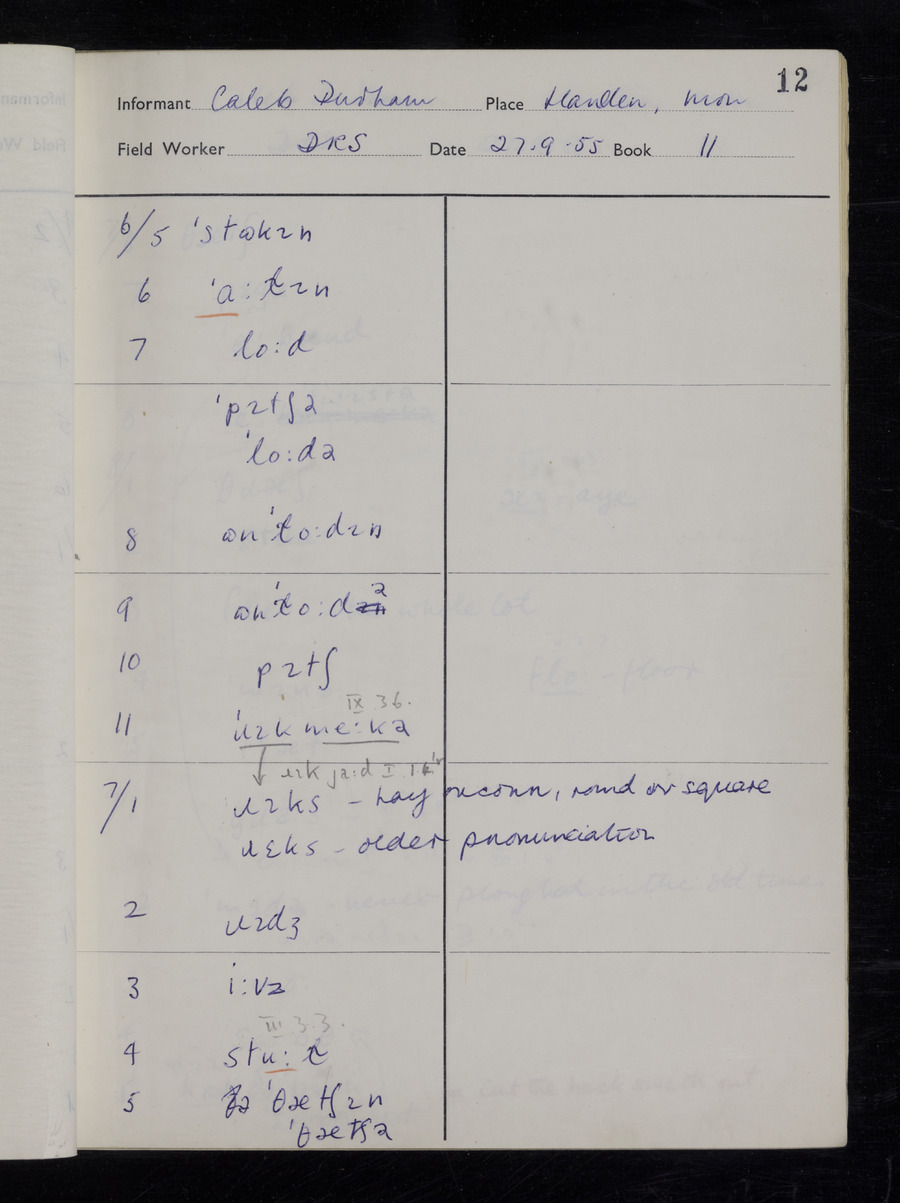 12
Informant Caleb Durham Place Llanden, Mon
Field Worker DRS Date 27.9.55 Book 11
6/5 ˈstɷkɪn
6 ˈa:ɫɪn
7 lo:d
ˈpɪtʃə
ˈlo:də
8 ɷnˈɫo:dɪn
9 ɷnˈɫo:də
10 pɪtʃ
IX 36.
11 ˈɹɪk me:kə
ɹɪk ja:d I 1
7/1 ɹɪks – hay or corn, round or square
ɹɛks – older pronunciation
2 ɹɪdʒ
3 i:vz
III 3.3.
4 stu:ɫ
5 ðə ˈθætʃɪn
ˈθætʃə